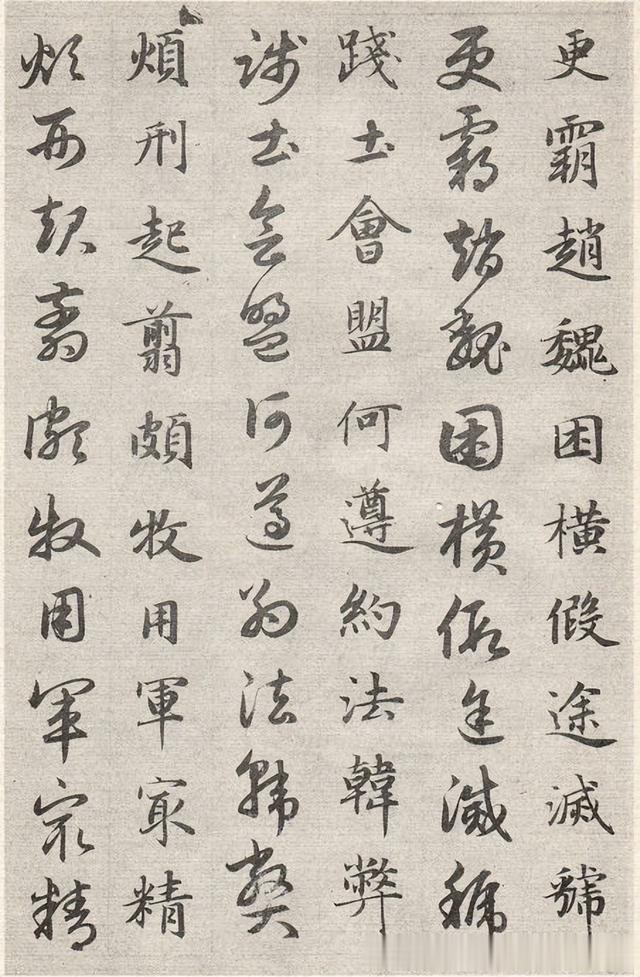 更霸趙魏困橫假途滅虢
更霸趙魏困橫假途滅虢
踐土會盟何遵約法韓弊
踐土會盟何遵約法韓弊
煩刑起翦頗牧用軍冣精
煩刑起翦頗牧用軍冣精